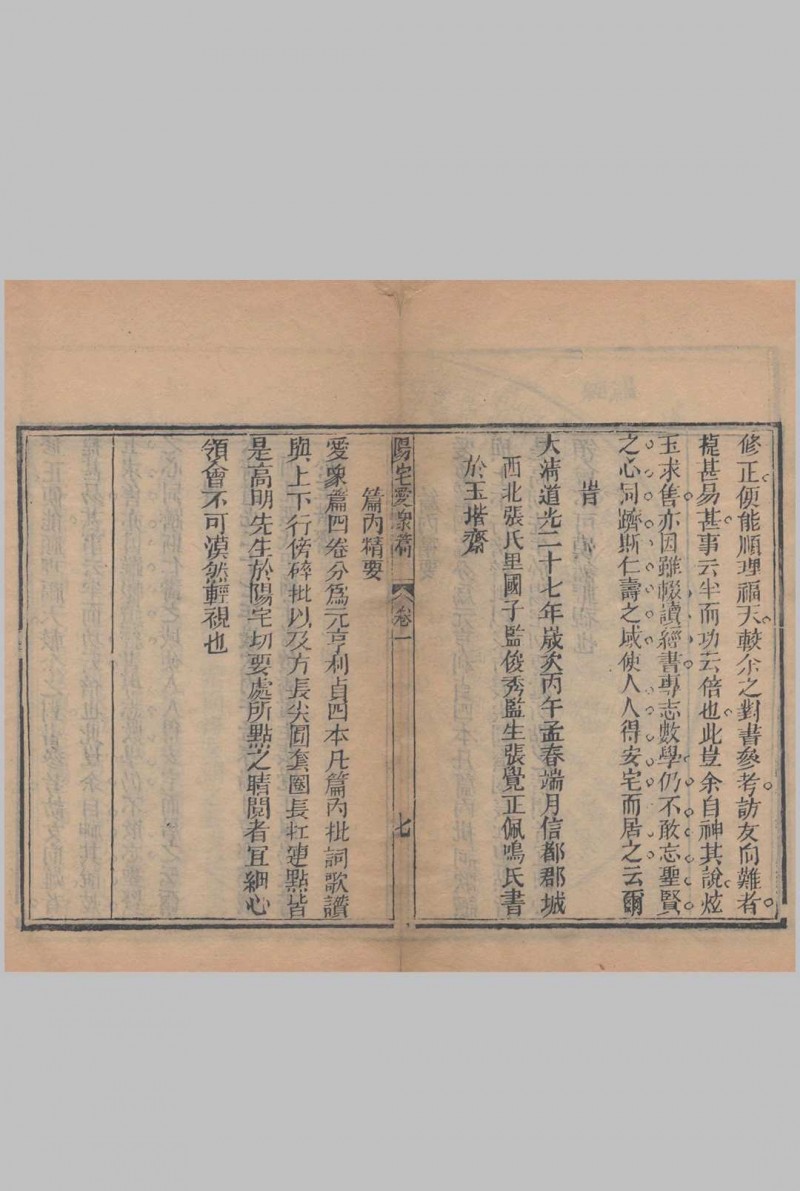 修正便能順理福天較余之對書叅考訪友向難者
甚易甚事云半而功云倍也此豈余自神其說炫
玉求售亦因雖輟讀經書專志數學仍不敢忘聖賢
之心同躋斯仁壽之域使人人得安宅而居之云爾
旹
大淸道光二十七年歲㳄丙午孟春端月信都郡城
西北張氏里國子監俊秀監生張覺正佩鳴氏書
於玉堦齋
陽宅愛衆篇 卷一 七
篇內精要
愛衆篇四卷分爲元亨利貞四本凡篇內批詞歌讚
與上下行傍碎批以及方長尖圓套圈長扛連點皆
是高明先生於陽宅切要處所點之睛閱者宜細心
領會不可漠然輕視也